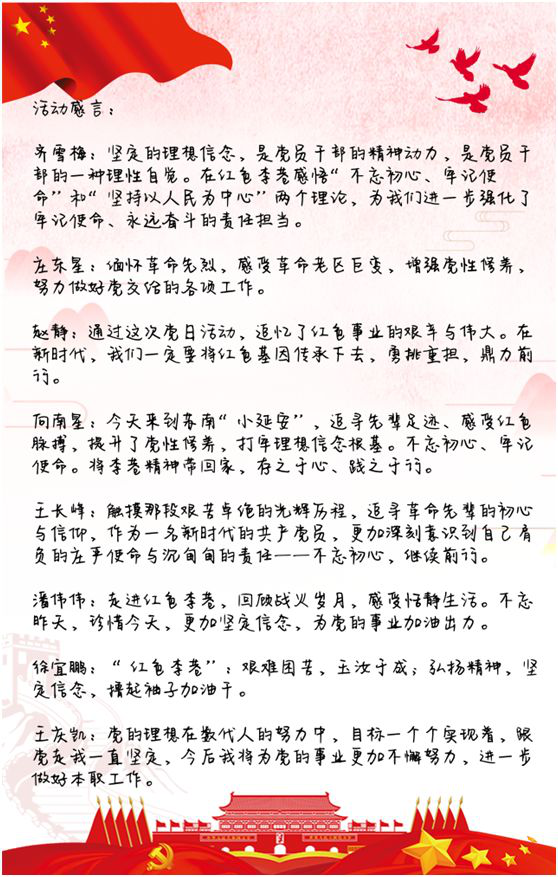 活动感言：
齐雪梅：坚定的理想信念，是党员干部的精神动力，是党员干
部的一种理性自觉。在红色李巷感悟“不忘初心、牢记使
命”和“坚持以人民为中心”两个理论，为我们进一步强化了
牢记使命、永远奋斗的责任担当。
庄东星：缅怀革命先烈，感受革命老区巨变，增强党性修养，
努力做好党交给的各项工作。
赵静：通过这次党日活动，追忆了红色事业的艰辛与伟大。在
新时代，我们一定要将红色基因传承下去，勇挑重担，鼎力前
行。
向南星：今天来到苏南“小延安”，追寻先辈足迹、感受红色
脉搏，提升了党性修养，打牢理想信念根基。不忘初心、牢记
使命。将李巷精神带回家，存之于心、践之于行。
王长峰：触摸那段艰苦卓绝的光辉历程，追寻革命先辈的初心
与信仰，作为一名新时代的共产党员，更加深刻意识到自己肩
负的庄严使命与沉甸甸的责任——不忘初心，继续前行。
潘伟伟：走进红色李巷，回顾战火岁月，感受恬静生活。不忘
昨天，珍惜今天，更加坚定信念，为党的事业加油出力。
徐宜鹏：“红色李巷”：艰难困苦，玉汝于成；弘扬精神，坚
定信念，撸起袖子加油干。
王灰凯：党的理想在数代人的努力中，目标一个个实现着，跟
党走我一直坚定，今后我将为党的事业更加不懈努力，进一步
做好本职工作。